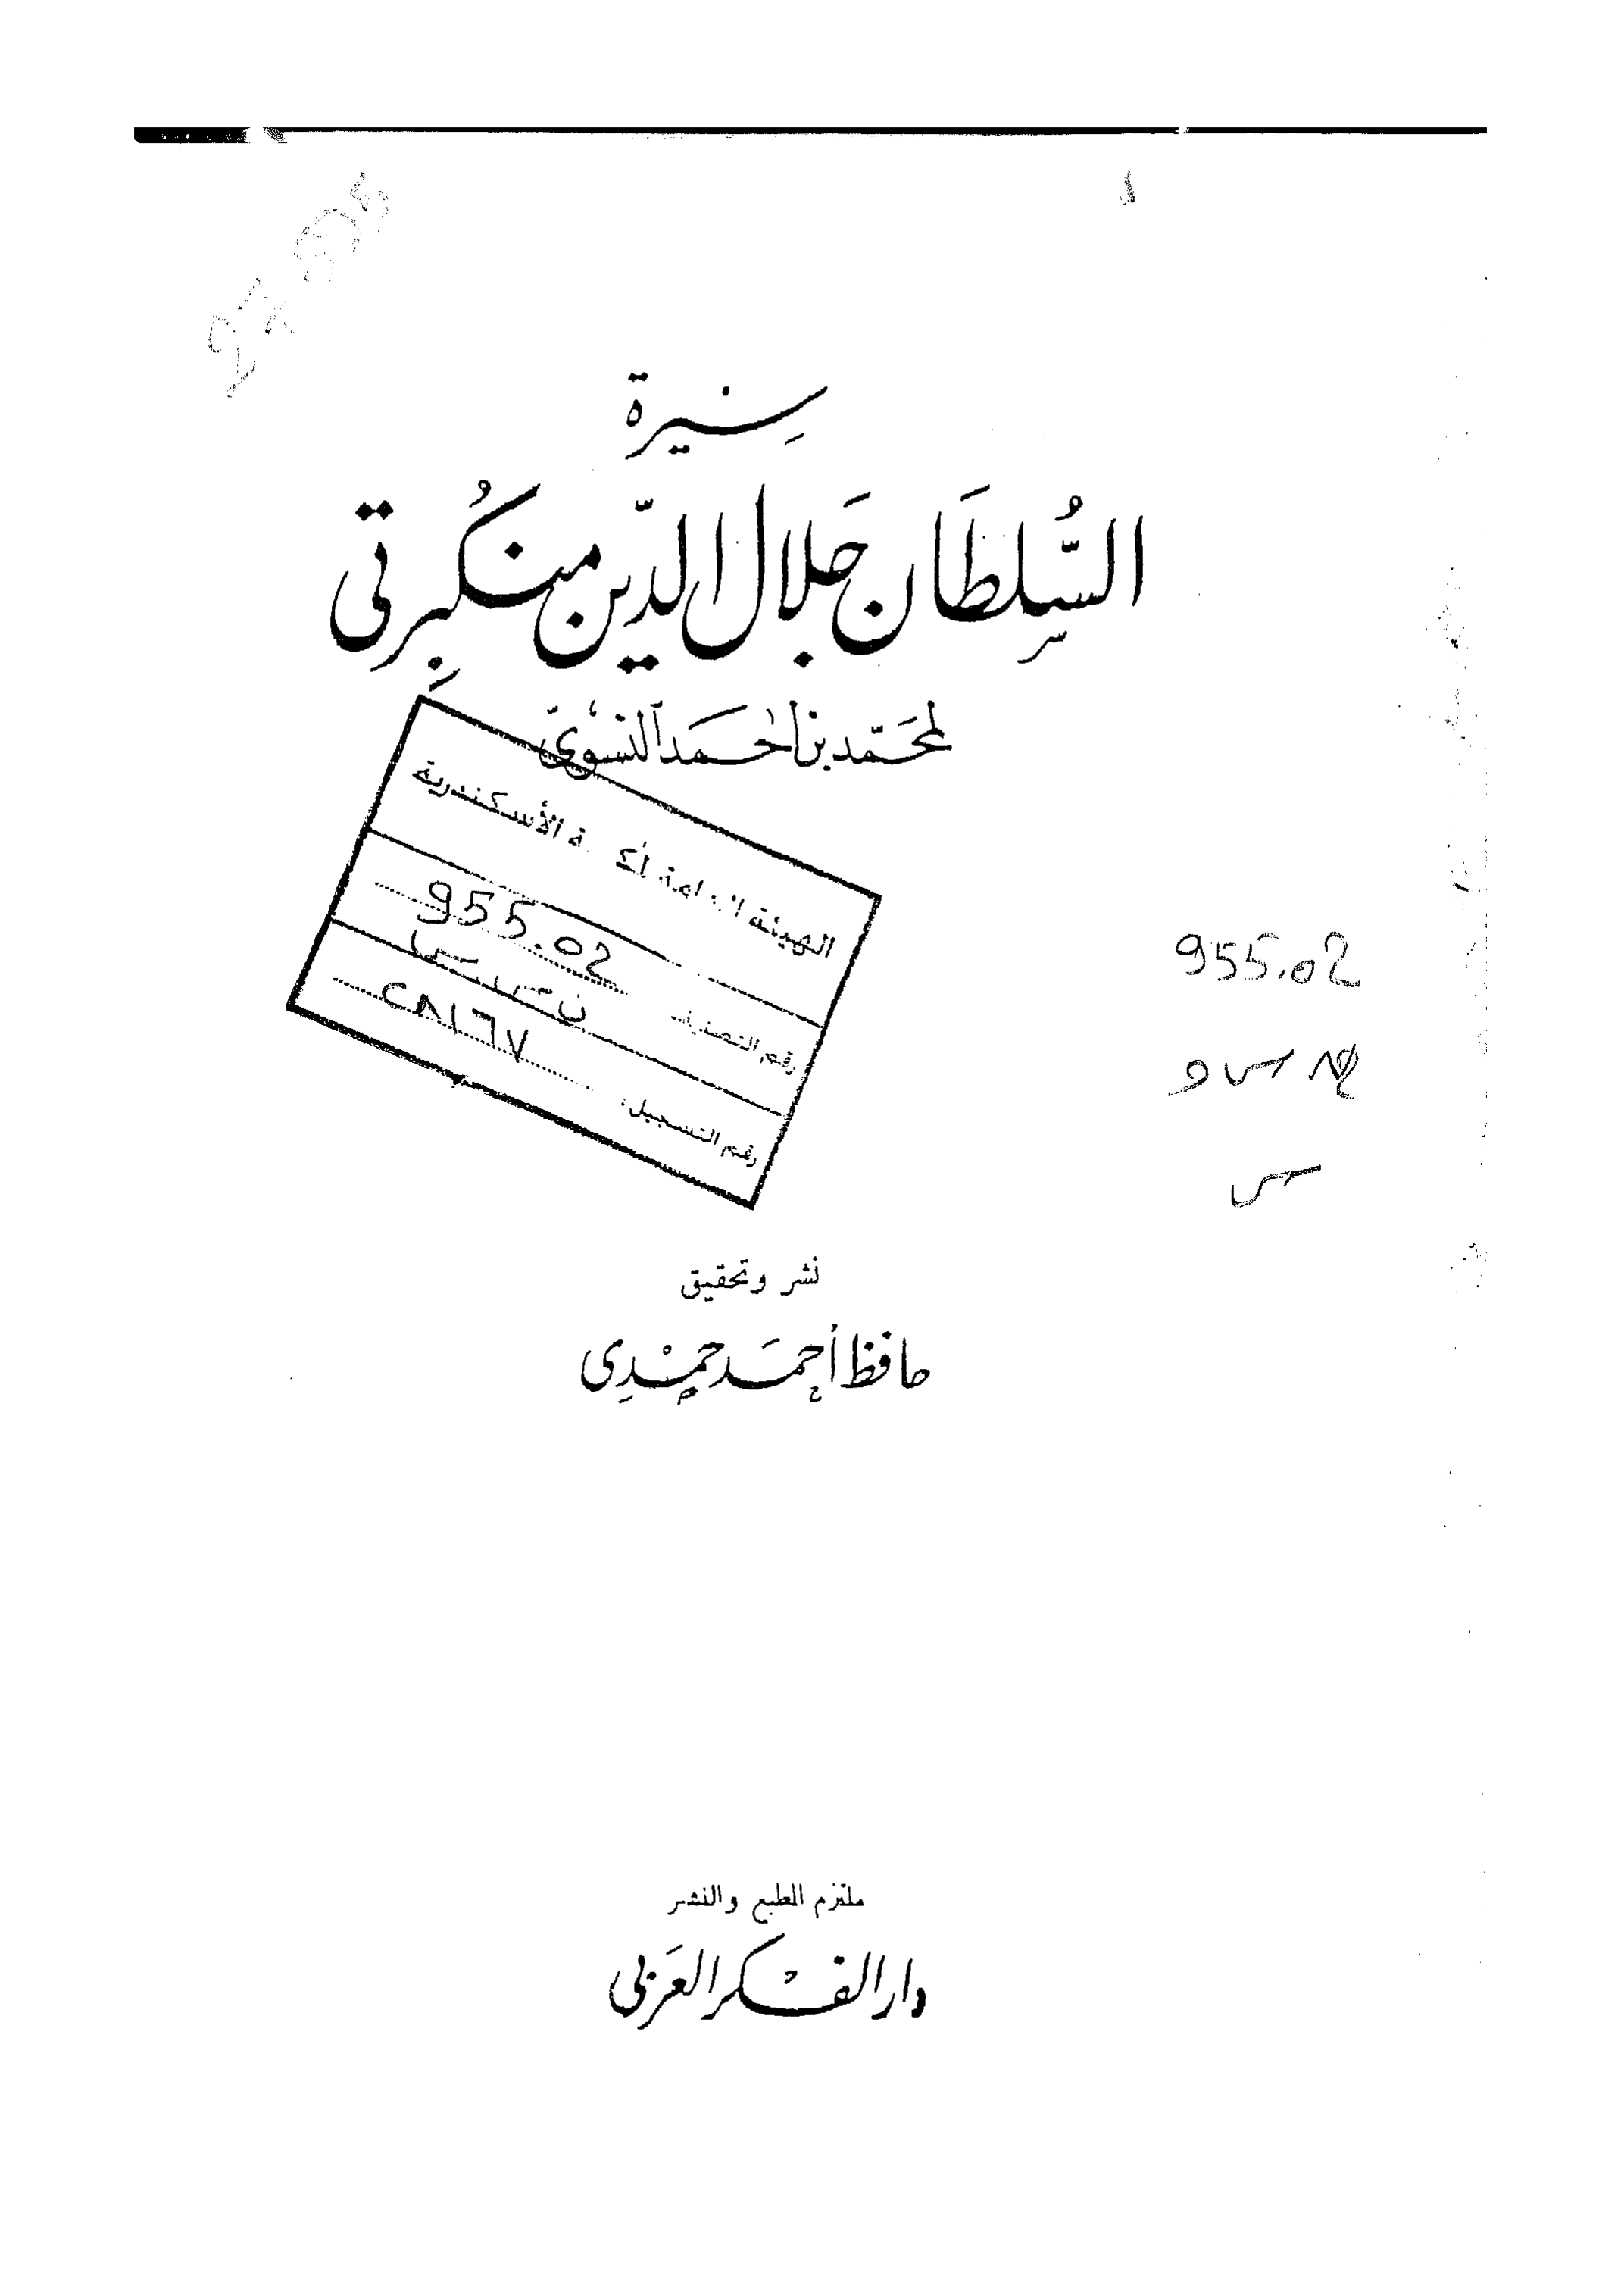 سيرة
السُّلطَان جَلال الدّين منكُبِرتى
لمحَمّد بن أحمَد النسَوىّ
الهيئة العامة لمكتبة الأسكندرية
955.02
رقم التصنيف
ن س س
رقم التسجيل:
٢٨١٦٧
955.02
س
نشر وتحقيق
حافظ أحمَد حمْدِى
ملتزم الطبع والنشر
دار الفكر العَربى